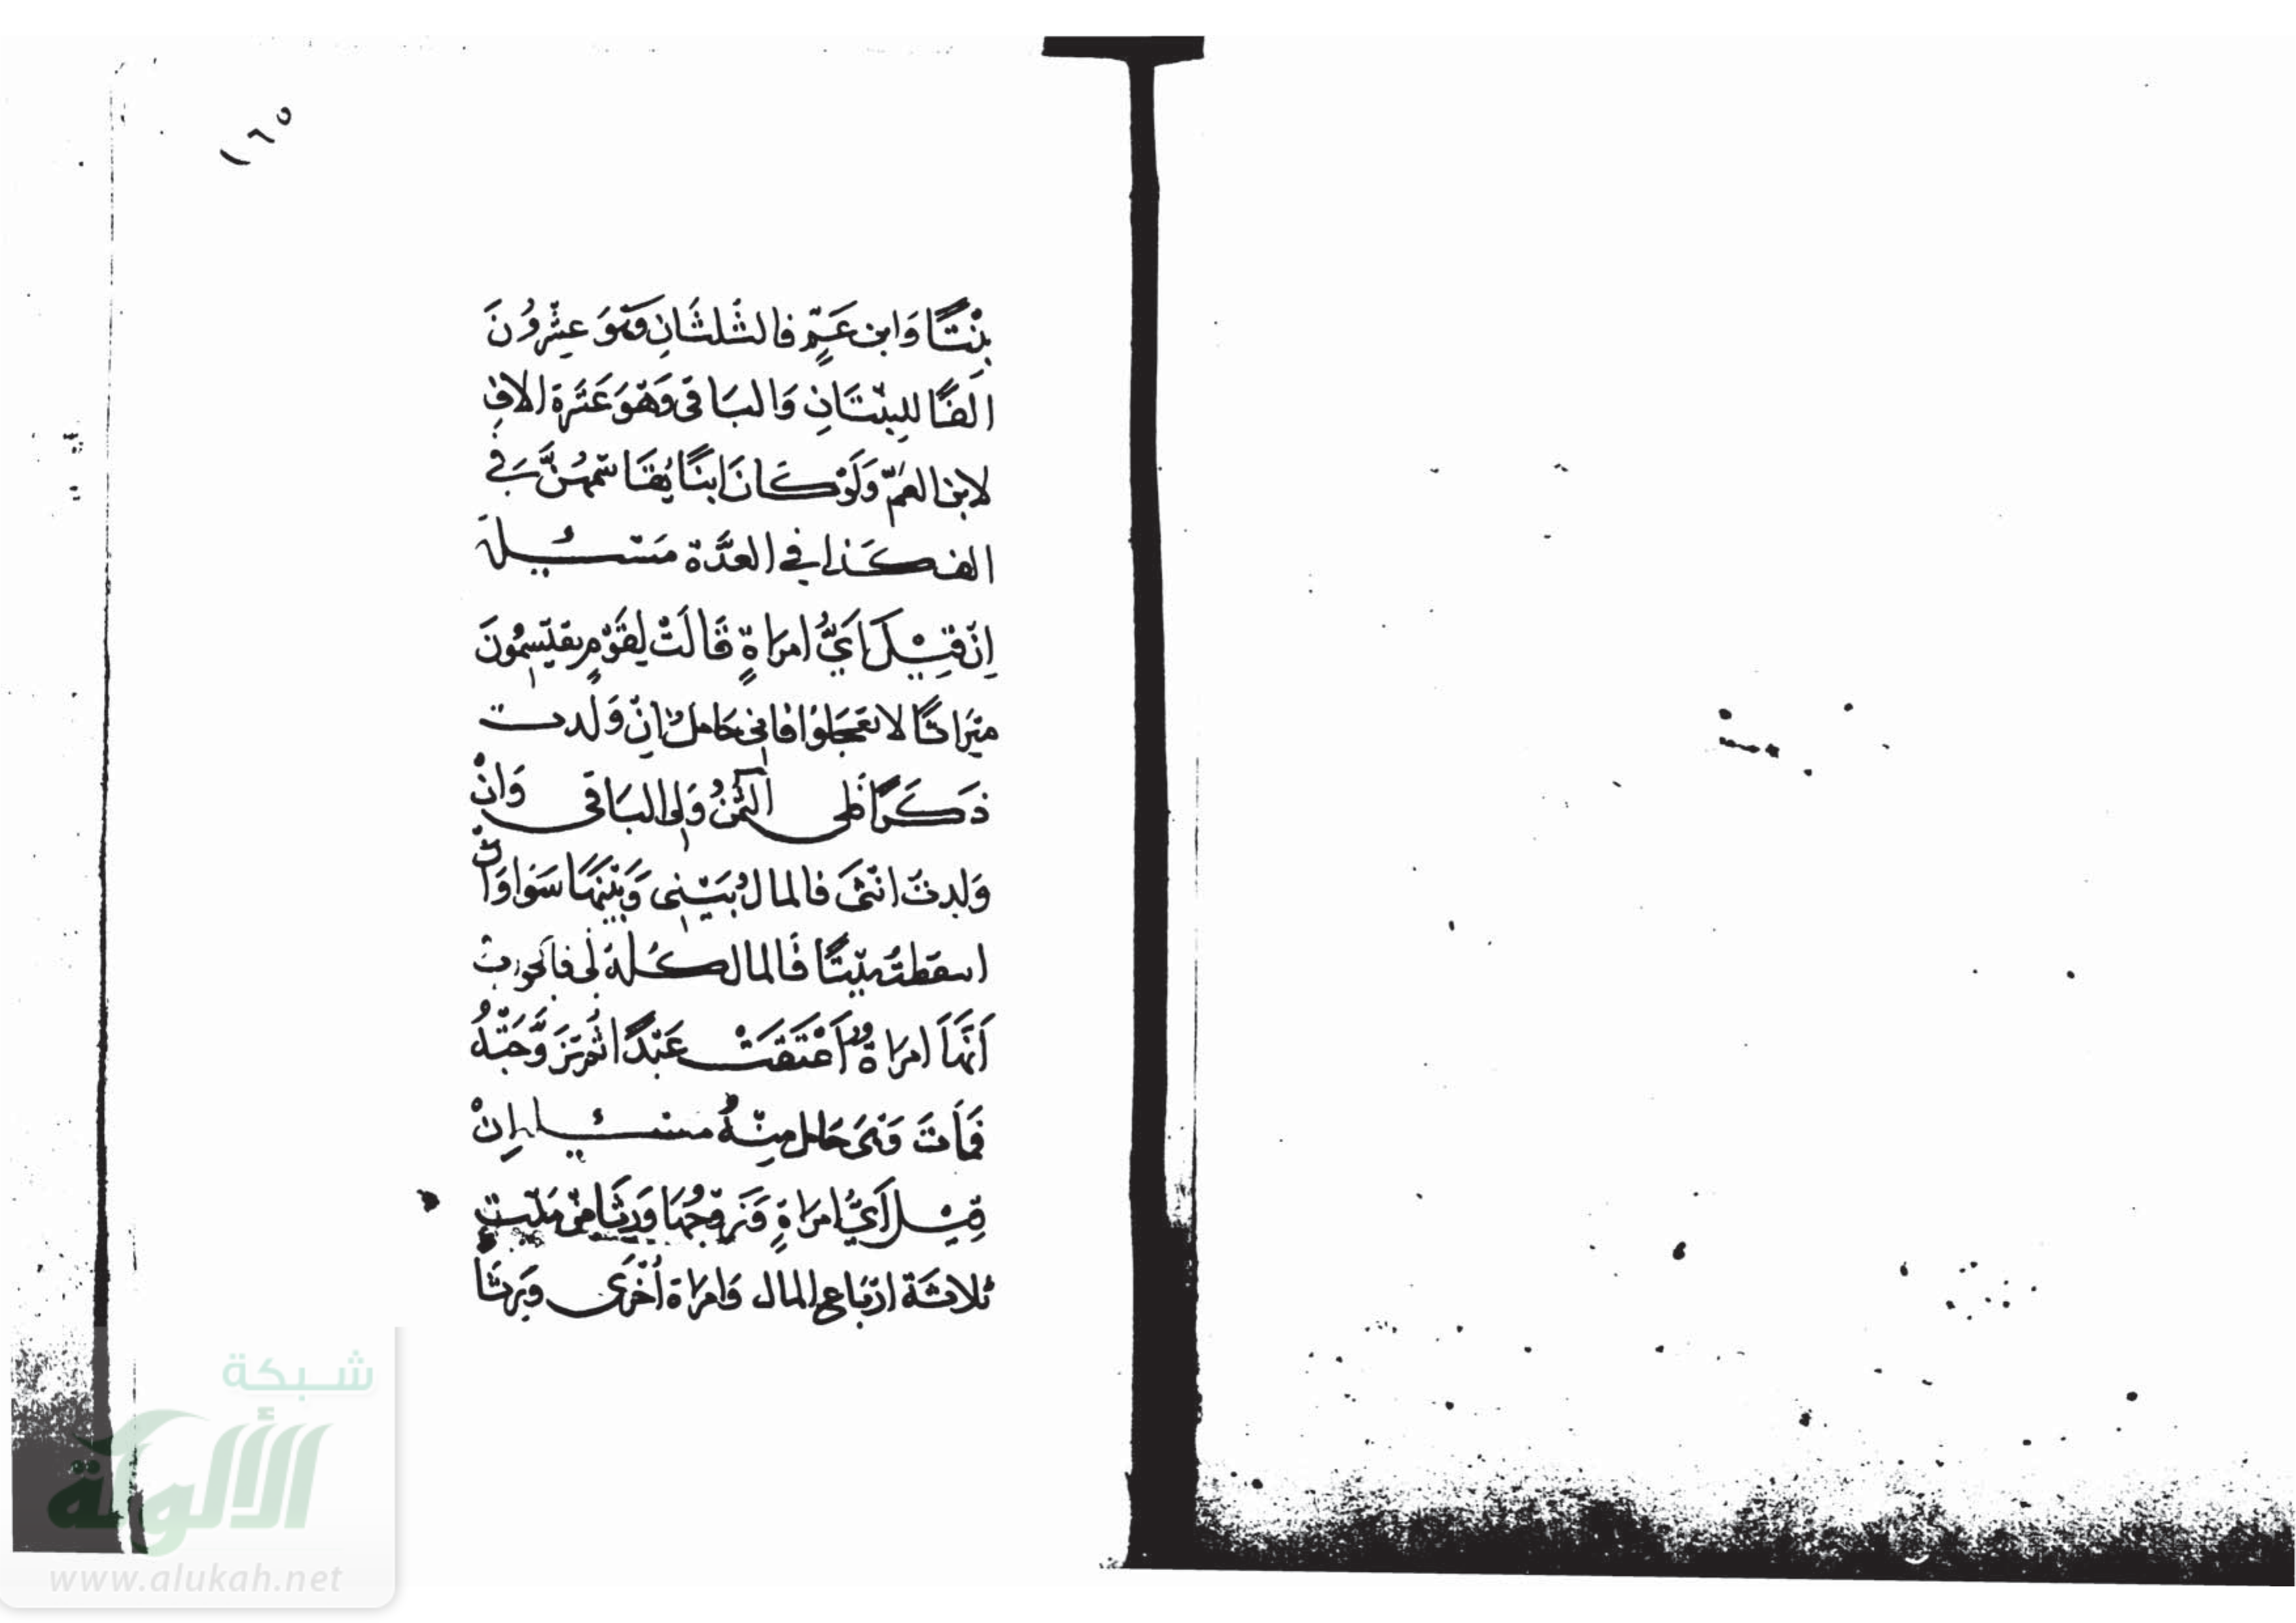 ١٦٥
بِنْتًا وَابن عَمٍّ فالثلثَانِ وَهوَ عِشْرُونَ
الفًا للبِنْتَانِ وَالبَاقى وَهْوَ عَشَرة الاف
لابن العَمّ وَلَوْ كَانَ ابنًا يُقَاسمْهُنَّ بَقى
الف كَذا في العدَّة مَسْئلة
اِنْ قِيْلَ اَيُّ امرَاةٍ قَالَتْ لِقَوْمٍ يقتَسِمُونَ
ميَراثًا لا تعجَلوُا فاِنى حَامل اِنْ وَلَدت
ذَكَرًا فَلى الثمُنُ وَله البَاقى وَانْ
وَلدت انثىَ فالمالُ بَيْنِى وَبَيْنَهَا سَوَا وَانْ
اسقطتُ ميّتًا فَالمال كُلهُ لى فالجوَاب
اَنهَا امرَاةٌ اَعْتَقَتْ عَبْدًا ثُم تَزَوَّجَتْهُ
فَماتَ وَهىَ حَامل مِنْهُ مسئلة اِنْ
قِيْلَ اَيُّ امرَاةٍ وَزَوْجُهَا وَرِثَا مِنْ مَيّتٍ
ثلاثَة ارْبَاع المال وَامرَاة اُخْرَى وَزوجُهَا
شبكة
الألوكة
www.alukah.net